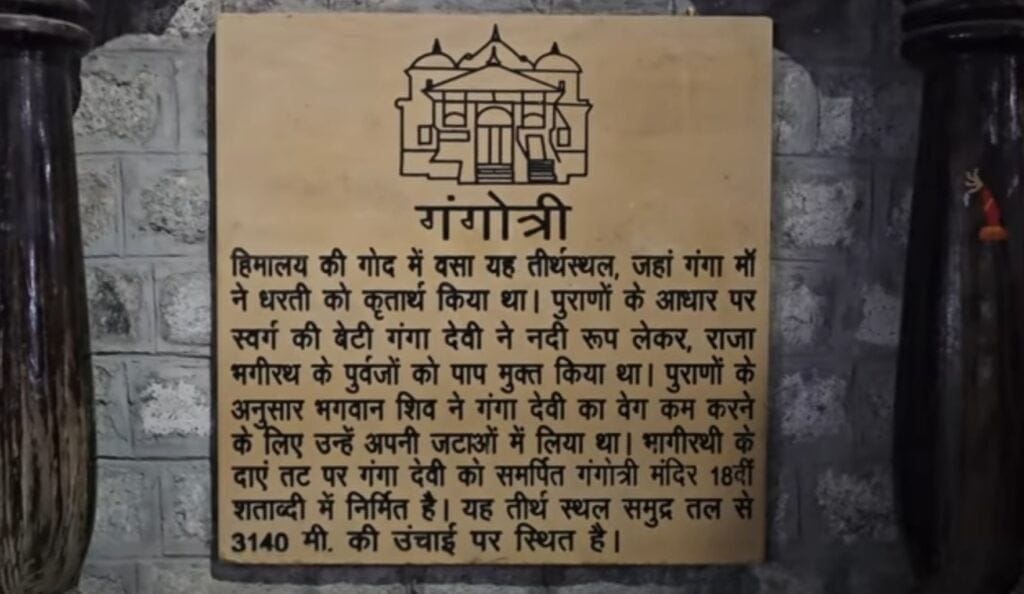 गंगोत्री
हिमालय की गोद में वसा यह तीर्थस्थल, जहां गंगा माँ
ने धरती को कृतार्थ किया था। पुराणों के आधार पर
स्वर्ग की बेटी गंगा देवी ने नदी रूप लेकर, राजा
भगीरथ के पुर्वजों को पाप मुक्त किया था। पुराणों के
अनुसार भगवान शिव ने गंगा देवी का वेग कम करने
के लिए उन्हें अपनी जटाओं में लिया था। भागीरथी के
दाएं तट पर गंगा देवी को समर्पित गंगोत्री मंदिर 18वीं
शताब्दी में निर्मित है। यह तीर्थ स्थल समुद्र तल से
3140 मी. की उंचाई पर स्थित है।